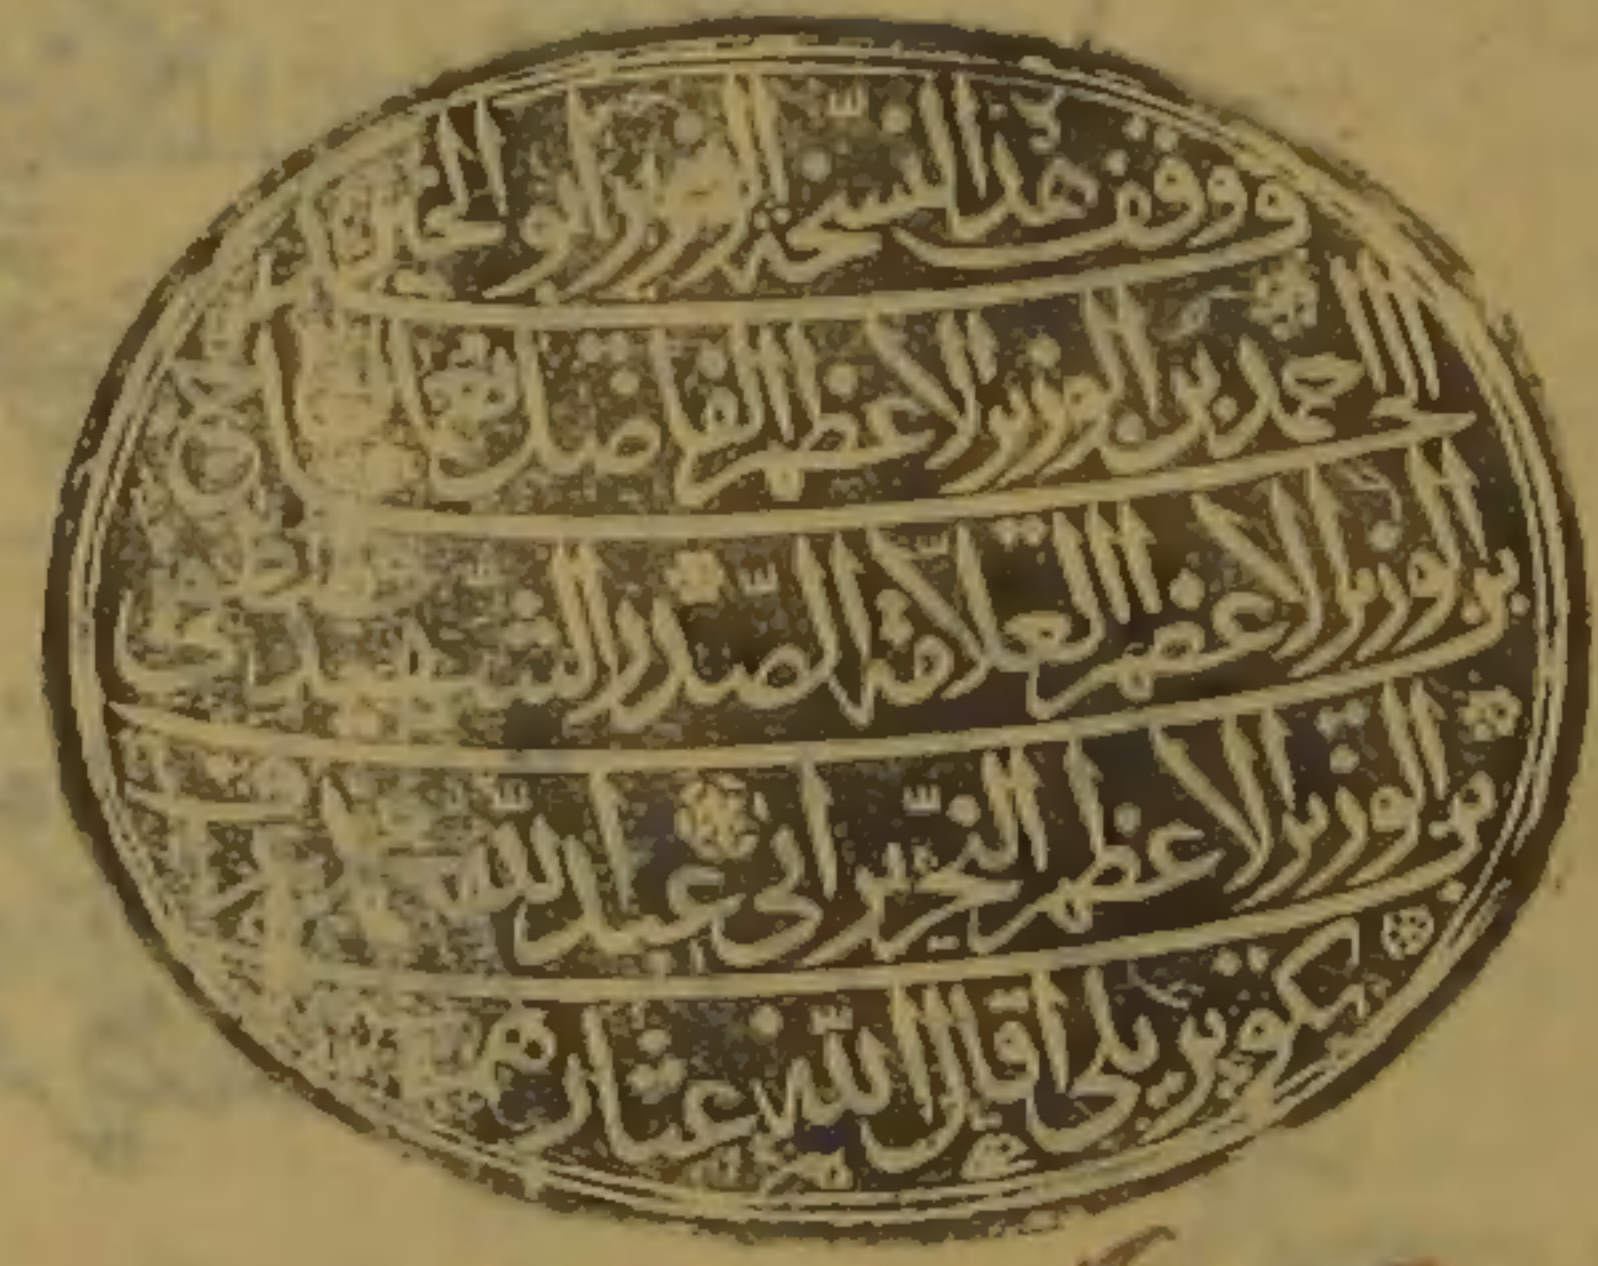 ووقف هذا النسخة الوزير ابو الخير
الحاج احمد بن الوزير الاعظم الفاضل نعمان
بن الوزير الاعظم العلامة الصدر الشهيد مصطفى
بن الوزير الاعظم النحرير ابى عبد الله محمد
بكوپريلى اقال الله عثارهم